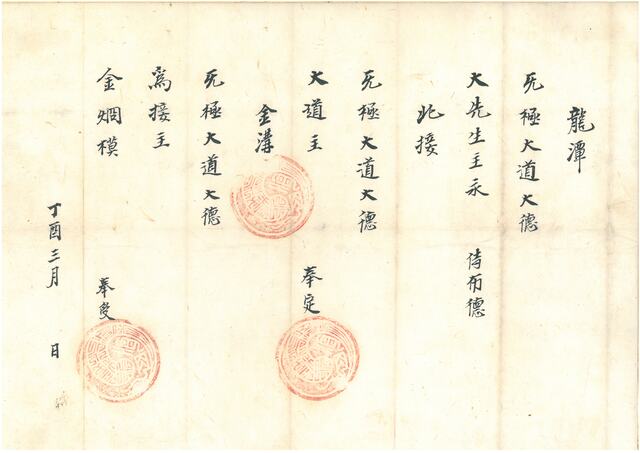 龍潭
无極大道大德
大先生主永 侍布德
北接
无極大道大德
大道主 奉定
金溝
无極大道大德
爲接主
金烱模 奉受
丁酉三月 日